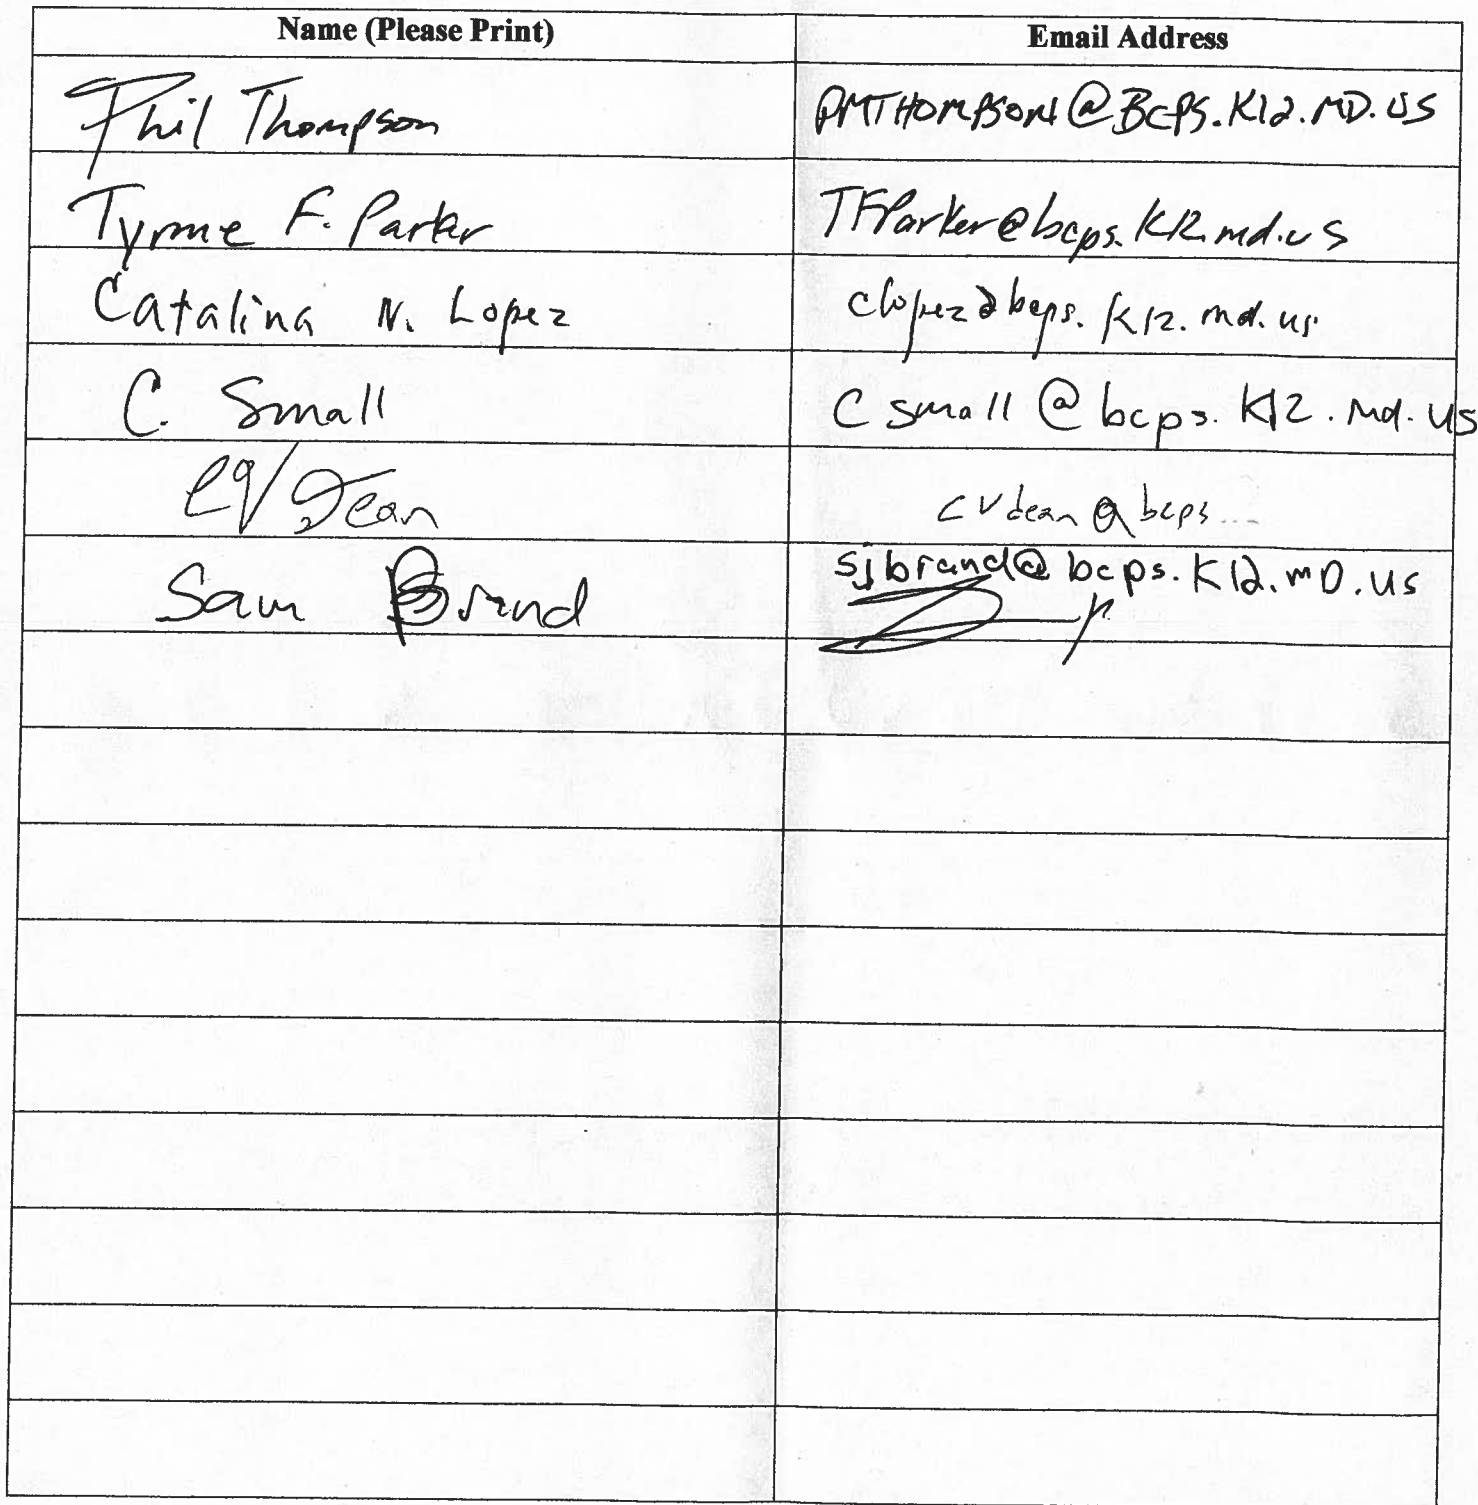 Name (Please Print) Email Address
Phil Thompson PMTHOMPSON@BCPS.K12.MD.US
F. Parker TFParker@bcps.K12.md.us
Catalina N. Lopez clopez@bcps.K12.md.us
C. Small Csmall@bcps.K12.Md.us
Dean cvdean@bcps...
Sam Brand sjbrand@bcps.K12.mD.us